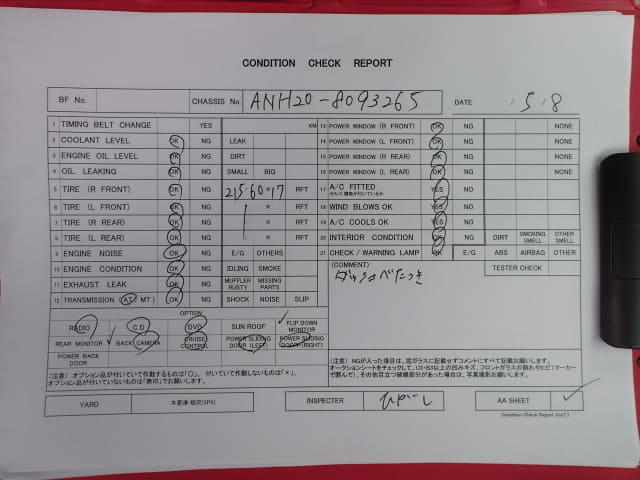 CONDITION CHECK REPORT
BF No. CHASSIS No. ANH20-8093265 DATE 5/8
1 TIMING BELT CHANGE YES KM
2 COOLANT LEVEL OK NG LEAK
3 ENGINE OIL LEVEL OK NG DIRT
4 OIL LEAKING OK NG SMALL BIG
5 TIRE (R FRONT) OK NG 215/60 R 17 RFT
6 TIRE (L FRONT) OK NG / R RFT
7 TIRE (R REAR) OK NG / R RFT
8 TIRE (L REAR) OK NG / R RFT
9 ENGINE NOISE OK NG E/G OTHERS
10 ENGINE CONDITION OK NG IDLING SMOKE
11 EXHAUST LEAK OK NG MUFFLER RUSTY MISSING PARTS
12 TRANSMISSION (AT/ MT) OK NG SHOCK NOISE SLIP
13 POWER WINDOW (R FRONT) OK NG NONE
14 POWER WINDOW (L FRONT) OK NG NONE
15 POWER WINDOW (R REAR) OK NG NONE
16 POWER WINDOW (L REAR) OK NG NONE
17 A/C FITTED YES NG
18 WIND BLOWS OK YES NG
19 A/C COOLS OK YES NG
20 INTERIOR CONDITION OK NG DIRT SMOKING SMELL OTHER SMELL
21 CHECK / WARNING LAMP OK E/G ABS AIRBAG OTHER
(COMMENT) TESTER CHECK
ダッシュべたつき
OPTION
RADIO CD DVD SUN ROOF FLIP DOWN MONITOR
REAR MONITOR BACK CAMERA CRUISE CONTROL POWER SLIDING DOOR (LEFT) POWER SLIDING DOOR (RIGHT)
POWER BACK DOOR
(注意) オプション品が付いていて作動するものは「○」、付いていて作動しないものは「×」、
オプション品が付いていないものは「無印」でお願いします。
(注意) NGが入った項目は、窓ガラスに記載せずコメントにすべて記載お願いします。
オークションシートをチェックして、U3・B3以上の凹みキズ、フロントガラスの割れやヒビ(マーカー
で囲んで)、その他目立つ破損部分があった場合は、写真撮影お願いします。
YARD 木更津 (SPK) INSPECTER ひがし AA SHEET ✓
Condition Check Report Ver7.1